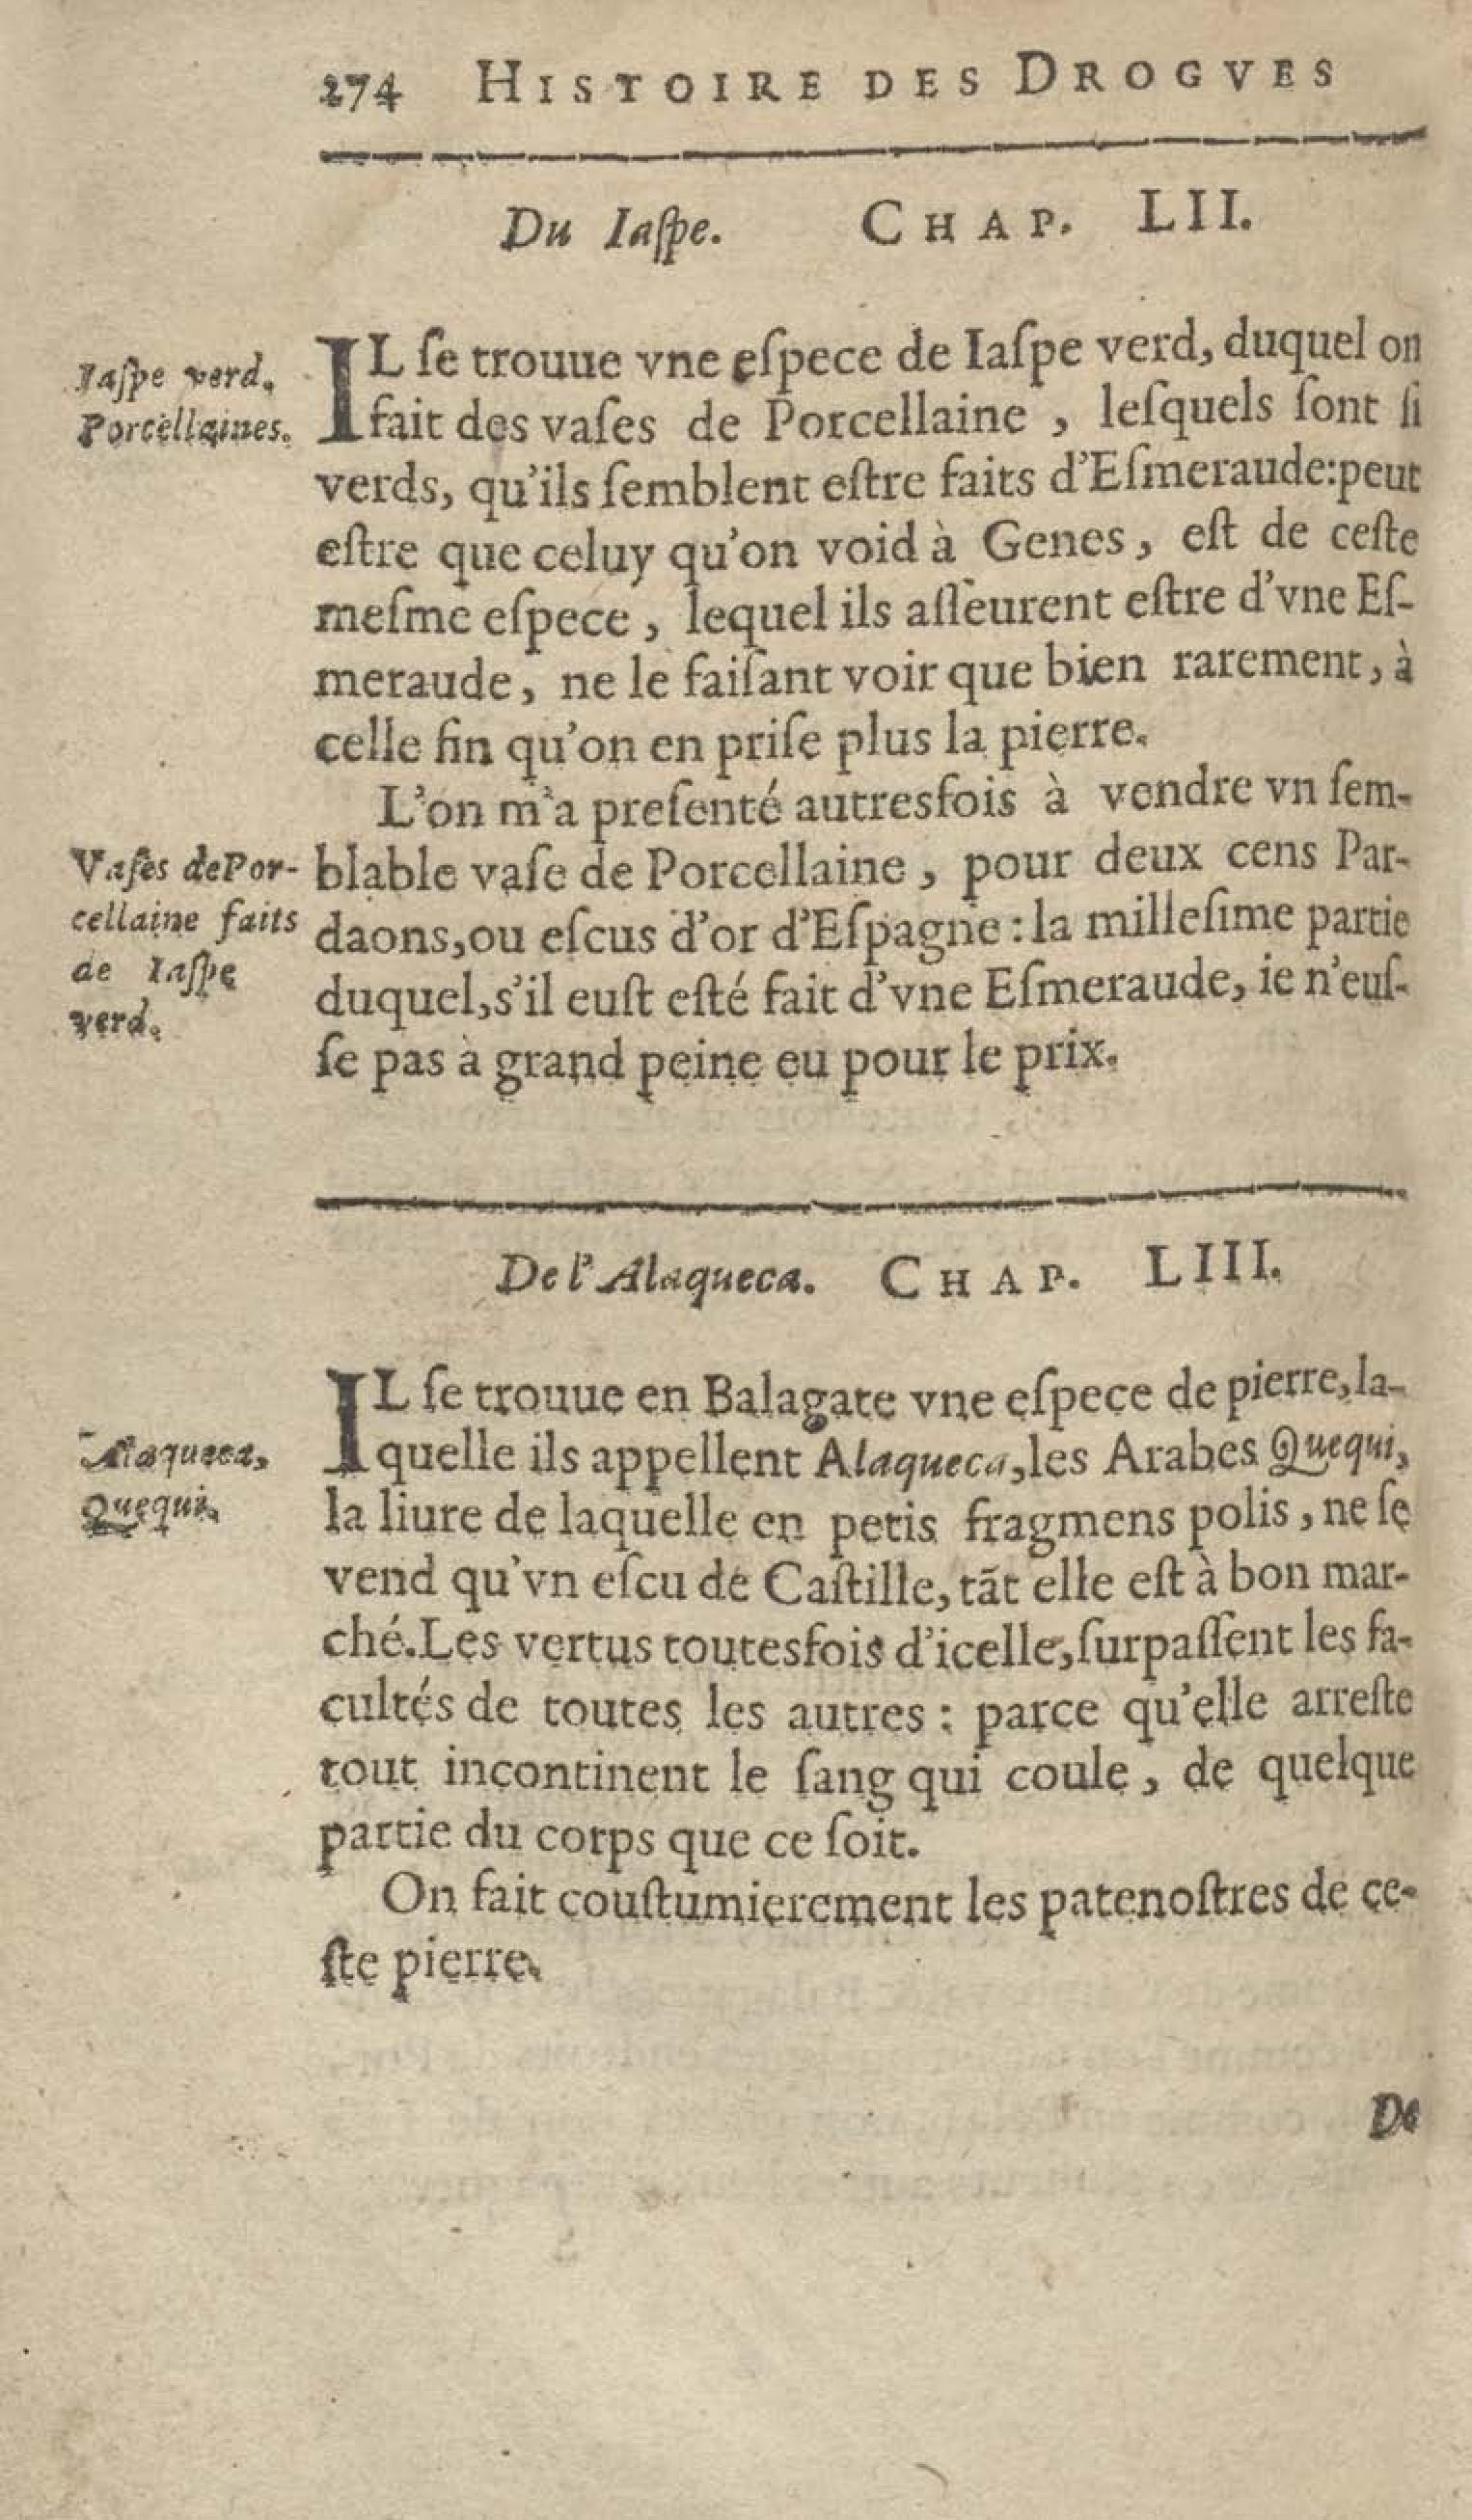 274 HISTOIRE DES DROGVES
Du Iaſpe. CHAP. LII.
Iaſpe verd.
Porcellaines.
IL ſe trouue vne eſpece de Iaſpe verd, duquel on
fait des vaſes de Porcellaine, leſquels ſont ſi
verds, qu'ils ſemblent eſtre faits d'Eſmeraude: peut
eſtre que celuy qu'on void à Genes, eſt de ceſte
meſme eſpece, lequel ils aſſeurent eſtre d'vne Eſ-
meraude, ne le faiſant voir que bien rarement, à
celle fin qu'on en priſe plus la pierre.
L'on m'a preſenté autresfois à vendre vn ſem-
Vaſes de Por-
cellaine faits
de Iaſpe
verd.
blable vaſe de Porcellaine, pour deux cens Par-
daons, ou eſcus d'or d'Eſpagne: la milleſime partie
duquel, s'il euſt eſté fait d'vne Eſmeraude, ie n'euſ-
ſe pas à grand peine eu pour le prix.
De l'Alaqueca. CHAP. LIII.
Alaqueca,
Quequi.
IL ſe trouue en Balagate vne eſpece de pierre, la-
quelle ils appellent Alaqueca, les Arabes Quequi,
la liure de laquelle en petis fragmens polis, ne ſe
vend qu'vn eſcu de Caſtille, tãt elle eſt à bon mar-
ché. Les vertus toutesfois d'icelle, ſurpaſſent les fa-
cultés de toutes les autres: parce qu'elle arreſte
tout incontinent le ſang qui coule, de quelque
partie du corps que ce ſoit.
On fait couſtumierement les patenoſtres de ce-
ſte pierre.
De